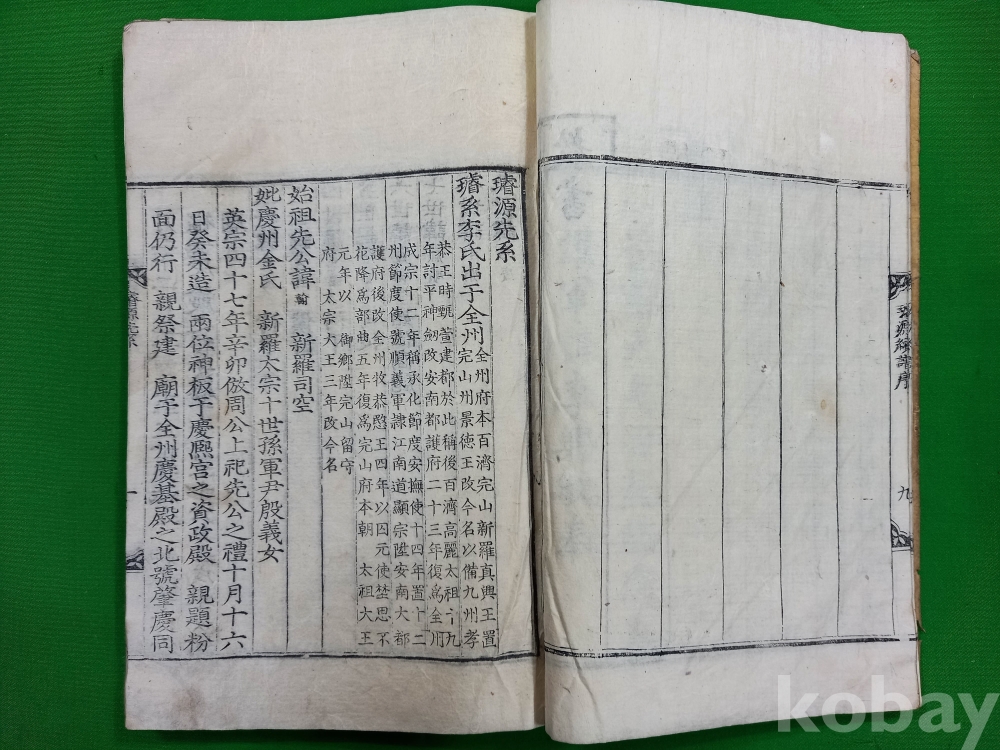 譜序
九
璿源先系
璿系李氏出于全州
全州府本百濟完山新羅真興王置
完山州景徳王改今名以備九州孝
恭王時甄萱建都於此稱後百濟高麗太祖十九
年討平神劒改安南都護府二十三年復爲全州
成宗十二年稱承化節度安撫使十四年置十二
州節度使號順義軍隷江南道顯宗陞安南大都
護府後改全州牧恭愍王四年以囚元使埜思不
花降爲部曲五年復爲完山府本朝 太祖大王
元年以 御鄉陞完山留守
府 太宗大王三年改今名
始祖先公諱 翰 新羅司空
妣慶州金氏 新羅太宗十世孫軍尹殷義女
英宗四十七年辛卯倣周公上祀先公之禮十月十六
日癸未造 兩位神板于慶熙宮之資政殿 親題粉
面仍行 親祭建 廟于全州慶基殿之北號肇慶同
璿源先系
一
kobay